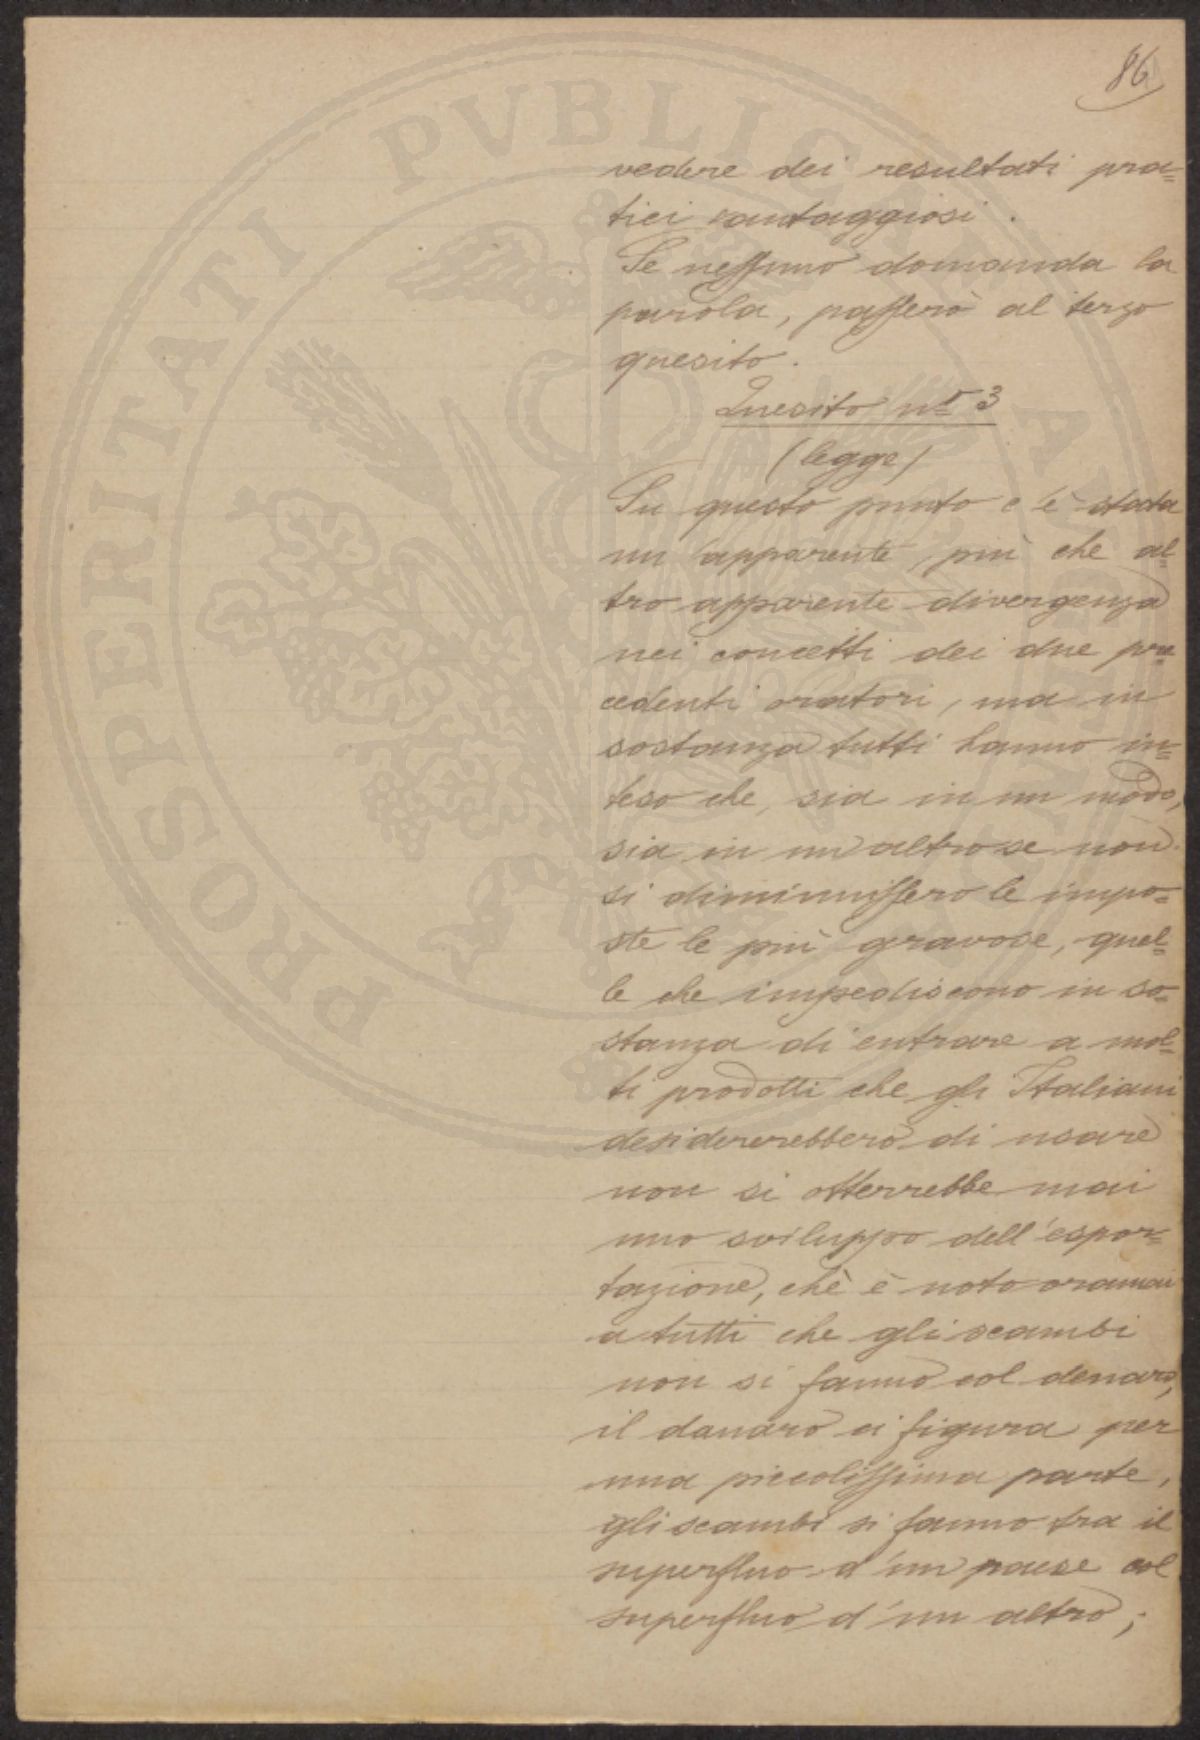 86
vedere dei resultati pra=
tici vantaggiosi.
Se nessuno domanda la
parola, passerò al terzo
quesito.
Quesito nº 3
(legge)
Su questo punto c'è stata
un'apparente, più che al=
tro apparente divergenza
nei concetti dei due pre=
cedenti oratori, ma in
sostanza tutti hanno in=
teso che, sia in un modo,
sia in un altro se non
si diminuissero le impo=
ste le più gravose, quel=
le che impediscono in so=
stanza di entrare a mol=
ti prodotti che gli Italiani
desidererebbero di usare
non si otterrebbe mai
uno sviluppo dell'espor=
tazione, chè è noto oramai
a tutti che gli scambi
non si fanno col denaro,
il danaro ci figura per
una piccolissima parte,
gli scambi si fanno tra il
superfluo d'un paese col
superfluo d'un altro;
PROSPERITATI PVBLICAE AVGENDAE